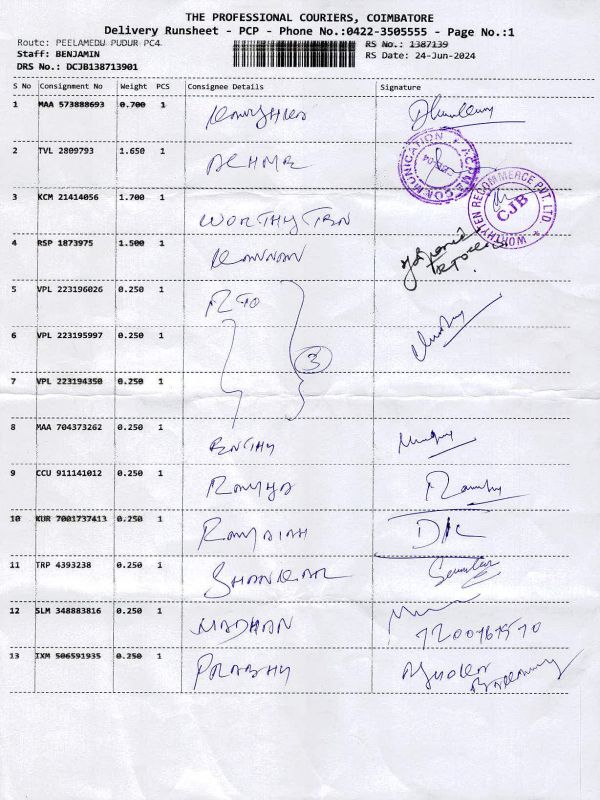 THE PROFESSIONAL COURIERS, COIMBATORE
Delivery Runsheet - PCP - Phone No.:0422-3505555 - Page No.:1
Route: PEELAMEDU PUDUR PC4
RS No.: 1387139
Staff: BENJAMIN
RS Date: 24-Jun-2024
DRS No.: DCJB138713901
S No Consignment No Weight PCS Consignee Details Signature
1 MAA 573888693 0.700 1
2 TVL 2809793 1.650 1
3 KCM 21414056 1.700 1 WORTHYTEN
WORTHYTEN RECOMMERCE PVT. LTD
CJB
4 RSP 1873975 1.500 1 KANNAN
5 VPL 223196026 0.250 1
6 VPL 223195997 0.250 1
3
7 VPL 223194350 0.250 1
8 MAA 704373262 0.250 1
9 CCU 911141012 0.250 1
10 KUR 7001737413 0.250 1
11 TRP 4393238 0.250 1 SHANKAR
12 SLM 348883816 0.250 1 MADHAN
13 IXM 506591935 0.250 1 PRABHU